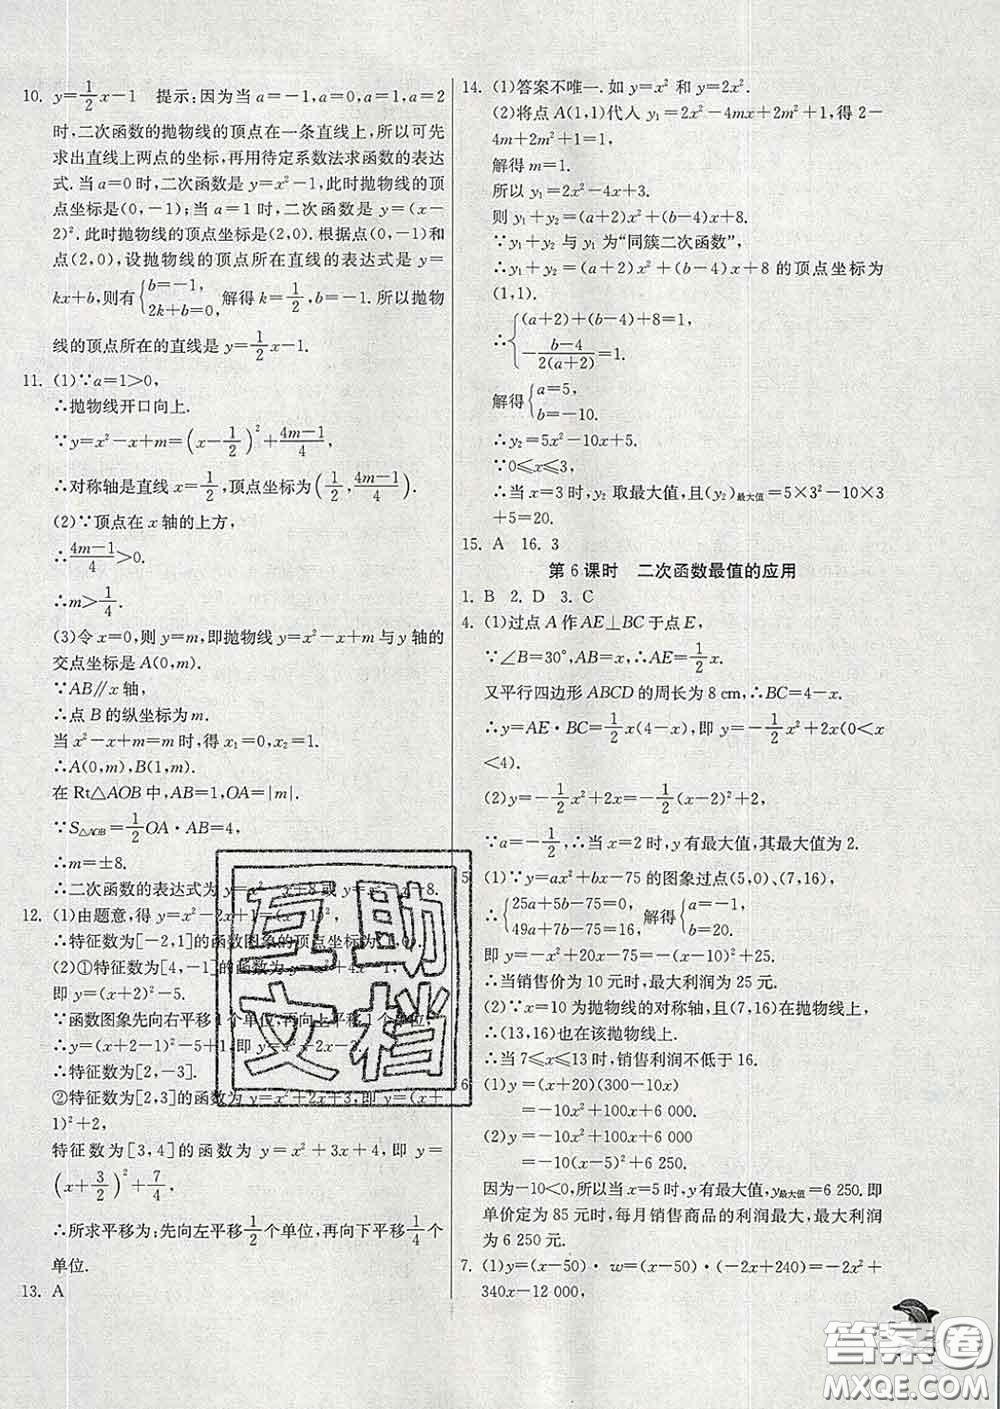 10. y=1/2x-1　提示:因为当a=-1,a=0,a=1,a=2
时,二次函数的抛物线的顶点在一条直线上,所以可先
求出直线上两点的坐标,再用待定系数法求函数的表达
式.当a=0时,二次函数是y=x²-1,此时抛物线的顶
点坐标是(0,-1);当a=1时,二次函数是y=(x-
2)².此时抛物线的顶点坐标是(2,0).根据点(0,-1)和
点(2,0),设抛物线的顶点所在直线的表达式是y=
kx+b,则有{b=-1, 2k+b=0. 解得k=1/2,b=-1.所以抛物
线的顶点所在的直线是y=1/2x-1.
11. (1)∵a=1>0,
∴抛物线开口向上.
∵y=x²-x+m=(x-1/2)²+(4m-1)/4,
∴对称轴是直线x=1/2,顶点坐标为(1/2,(4m-1)/4).
(2)∵顶点在x轴的上方,
∴(4m-1)/4>0.
∴m>1/4.
(3)令x=0,则y=m,即抛物线y=x²-x+m与y轴的
交点坐标是A(0,m).
∵AB∥x轴,
∴点B的纵坐标为m.
当x²-x+m=m时,得x₁=0,x₂=1.
∴A(0,m),B(1,m).
在Rt△AOB中,AB=1,OA=|m|.
∵S△AOB=1/2OA·AB=4,
∴m=±8.
∴二次函数的表达式为y=x²-x+8或y=x²-x-8.
12. (1)由题意,得y=x²-2x+1=(x-1)²,
∴特征数为[-2,1]的函数图象的顶点坐标为(1,0).
(2)①特征数为[4,-1]的函数为y=x²+4x-1,
即y=(x+2)²-5.
∵函数图象先向右平移1个单位,再向上平移1个单位,
∴y=(x+2-1)²-5+1,即y=x²+2x-3.
∴特征数为[2,-3].
②特征数为[2,3]的函数为y=x²+2x+3,即y=(x+
1)²+2,
特征数为[3,4]的函数为y=x²+3x+4,即y=
(x+3/2)²+7/4,
∴所求平移为:先向左平移1/2个单位,再向下平移1/4个
单位.
13. A
14. (1)答案不唯一.如y=x²和y=2x².
(2)将点A(1,1)代人y₁=2x²-4mx+2m²+1,得2-
4m+2m²+1=1.
解得m=1.
所以y₁=2x²-4x+3.
则y₁+y₂=(a+2)x²+(b-4)x+8.
∵y₁+y₂与y₁为“同簇二次函数”,
∴y₁+y₂=(a+2)x²+(b-4)x+8的顶点坐标为
(1,1).
∴{(a+2)+(b-4)+8=1, -(b-4)/(2(a+2))=1.
解得{a=5, b=-10.
∴y₂=5x²-10x+5.
∵0≤x≤3,
∴当x=3时,y₂取最大值,且(y₂)最大值=5×3²-10×3
+5=20.
15. A　16. 3
第6课时　二次函数最值的应用
1. B　2. D　3. C
4. (1)过点A作AE⊥BC于点E,
∵∠B=30°,AB=x,∴AE=1/2x.
又平行四边形ABCD的周长为8 cm,∴BC=4-x.
∴y=AE·BC=1/2x(4-x),即y=-1/2x²+2x(0<x
<4).
(2)y=-1/2x²+2x=-1/2(x-2)²+2,
∵a=-1/2,∴当x=2时,y有最大值,其最大值为2.
5. (1)∵y=ax²+bx-75的图象过点(5,0)、(7,16),
∴{25a+5b-75=0, 49a+7b-75=16. 解得{a=-1, b=20.
∴y=-x²+20x-75=-(x-10)²+25.
∴当销售价为10元时,最大利润为25元.
(2)∵x=10为抛物线的对称轴,且(7,16)在抛物线上,
∴(13,16)也在该抛物线上.
∴当7≤x≤13时,销售利润不低于16.
6. (1)y=(x+20)(300-10x)
=-10x²+100x+6 000.
(2)y=-10x²+100x+6 000
=-10(x-5)²+6 250.
因为-10<0,所以当x=5时,y有最大值,y最大值=6 250.即
单价定为85元时,每月销售商品的利润最大,最大利润
为6 250元.
7. (1)y=(x-50)·w=(x-50)·(-2x+240)=-2x²+
340x-12 000,
互助
文档
答案卷
MXQE.COM